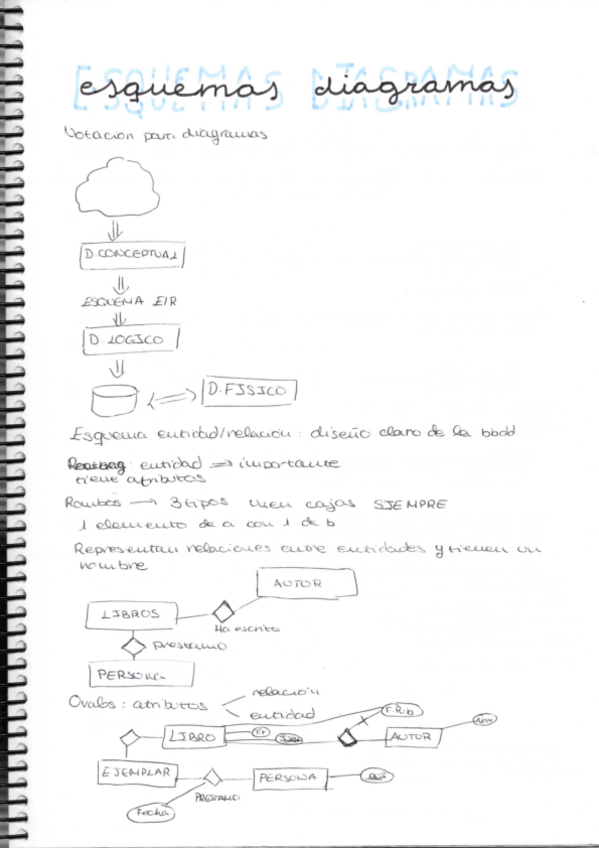 ESQUEMAS DIAGRAMAS
esquemas diagramas
Notacion para diagramas
D.CONCEPTUAL
ESQUEMA E/R
D. LOGICO
D.FISICO
Esquema entidad/relación: diseño claro de la bbdd
: entidad ⇒ importante
tiene atributos
Rombos → 3 tipos unen cajas SIEMPRE
1 elemento de a con 1 de b
Representan relaciones entre entidades y tienen un
nombre
AUTOR
LIBROS
Ha escrito
prestamo
PERSONA
Ovalos: atributos
relación
entidad
F.Pub
LIBRO
AUTOR
EJEMPLAR
PERSONA
PRESTAMO
Fecha